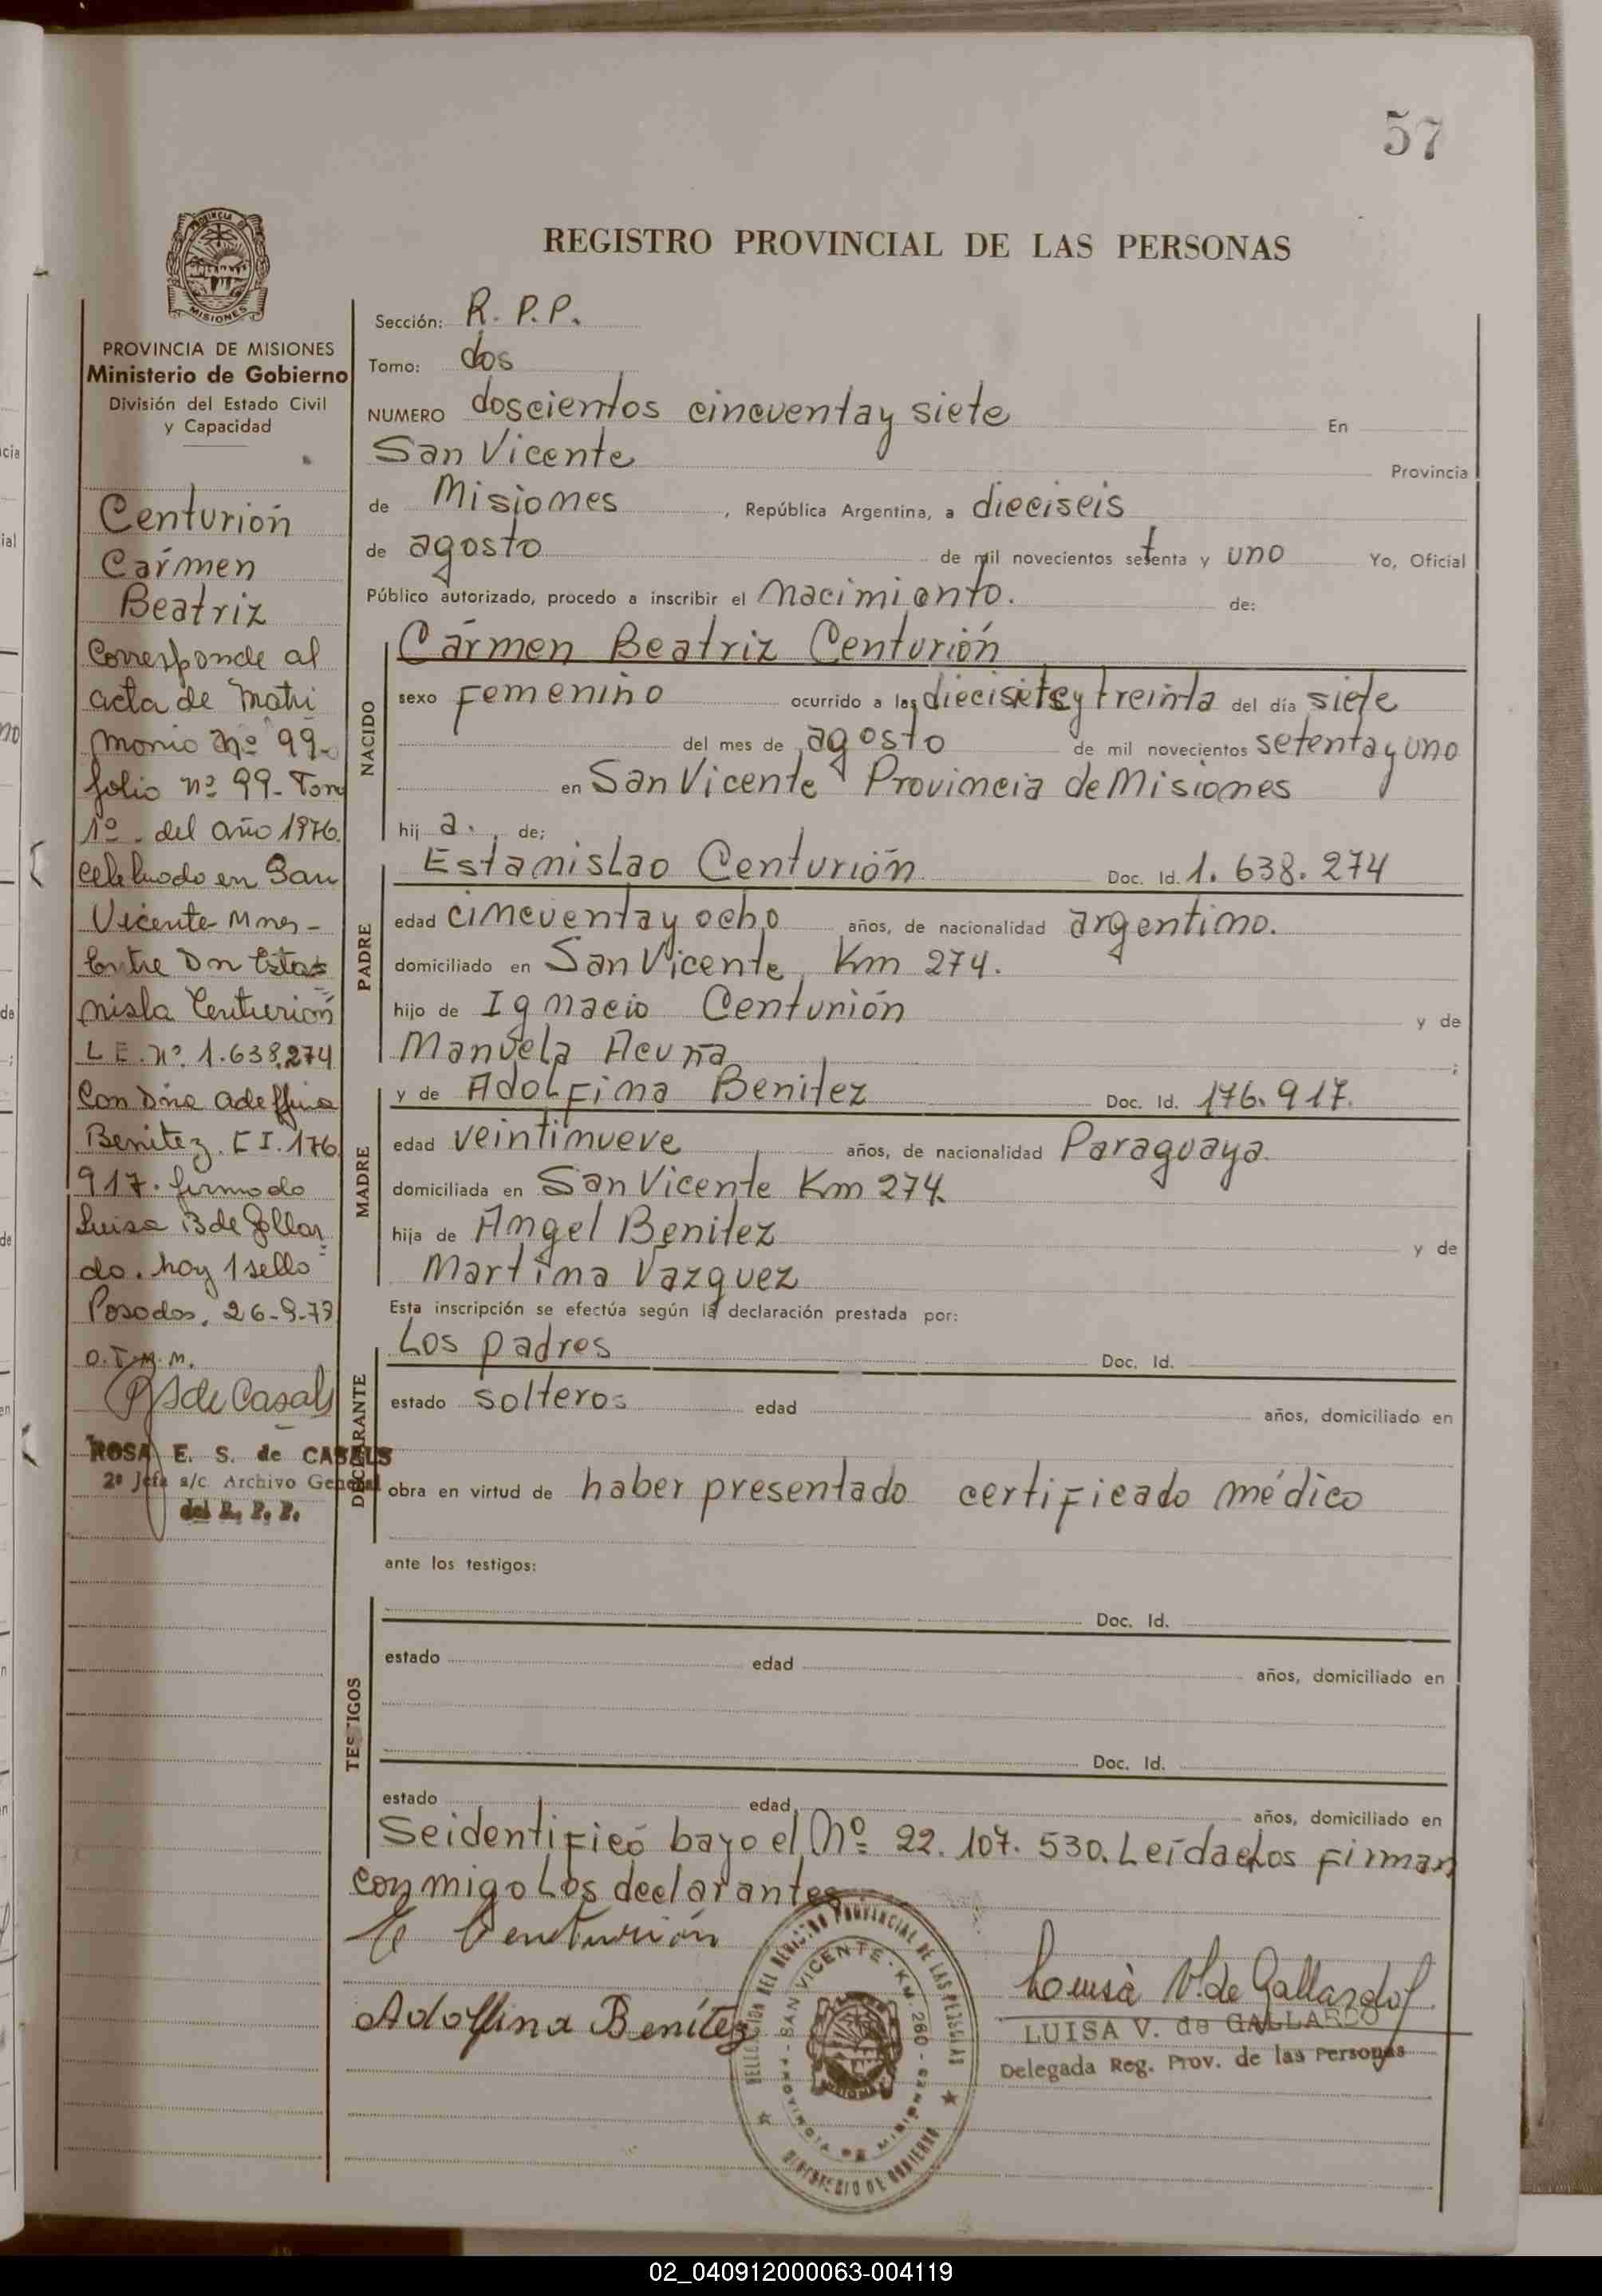 57
PROVINCIA DE
MISIONES
REGISTRO PROVINCIAL DE LAS PERSONAS
PROVINCIA DE MISIONES
Ministerio de Gobierno
División del Estado Civil
y Capacidad
Centurión
Cármen
Beatriz
Corresponde al
acta de Matri
monio nº 99-
folio nº 99- Tom
1º - del año 1976.
celebrado en San
Vicente Mnes -
Entre Dn Esta=
nisla Centurión
L E. Nº. 1.638.274
Con Dña Adelfina
Benitez. C I. 176
917. firmado
Luisa B de Gallar
do. hay 1 sello
Posadas, 26-9-79
O. T. M. M.
RSdeCasals
ROSA E. S. de CASALS
2º Jefa a/c. Archivo General
del R. P. P.
Sección: R. P. P.
Tomo: dos
NUMERO doscientos cincuenta y siete En
San Vicente Provincia
de Misiones, República Argentina, a dieciseis
de agosto de mil novecientos setenta y uno Yo, Oficial
Público autorizado, procedo a inscribir el nacimiento. de:
NACIDO
Cármen Beatriz Centurión
sexo Femenino ocurrido a las diecisiete y treinta del día siete
del mes de agosto de mil novecientos setenta y uno
en San Vicente Provincia de Misiones
hij a. de;
PADRE
Estanislao Centurión Doc. Id. 1. 638. 274
edad cincuenta y ocho años, de nacionalidad argentino.
domiciliado en San Vicente Km 274.
hijo de Ignacio Centurión y de
Manuela Acuña ;
MADRE
y de Adolfina Benitez Doc. Id. 176.917.
edad veintinueve años, de nacionalidad Paraguaya.
domiciliada en San Vicente Km 274.
hija de Angel Benitez y de
Martina Vazquez
Esta inscripción se efectúa según la declaración prestada por:
DECLARANTE
Los padres Doc. Id.
estado solteros edad años, domiciliado en
obra en virtud de haber presentado certificado médico
ante los testigos:
TESTIGOS
Doc. Id.
estado edad años, domiciliado en
Doc. Id.
estado edad años, domiciliado en
Se identificó bayo el Nº 22. 107. 530. Leída Los firman
conmigo Los declarantes
E Centurión
Adolfina Benítez
DELEGACION DEL REGISTRO PROVINCIAL DE LAS PERSONAS
SAN VICENTE - KM. 260 -
PROVINCIA DE MISIONES
MINISTERIO DE GOBIERNO
Luisa V. de Gallardo
LUISA V. de GALLARDO
Delegada Reg. Prov. de las Personas
02_040912000063-004119